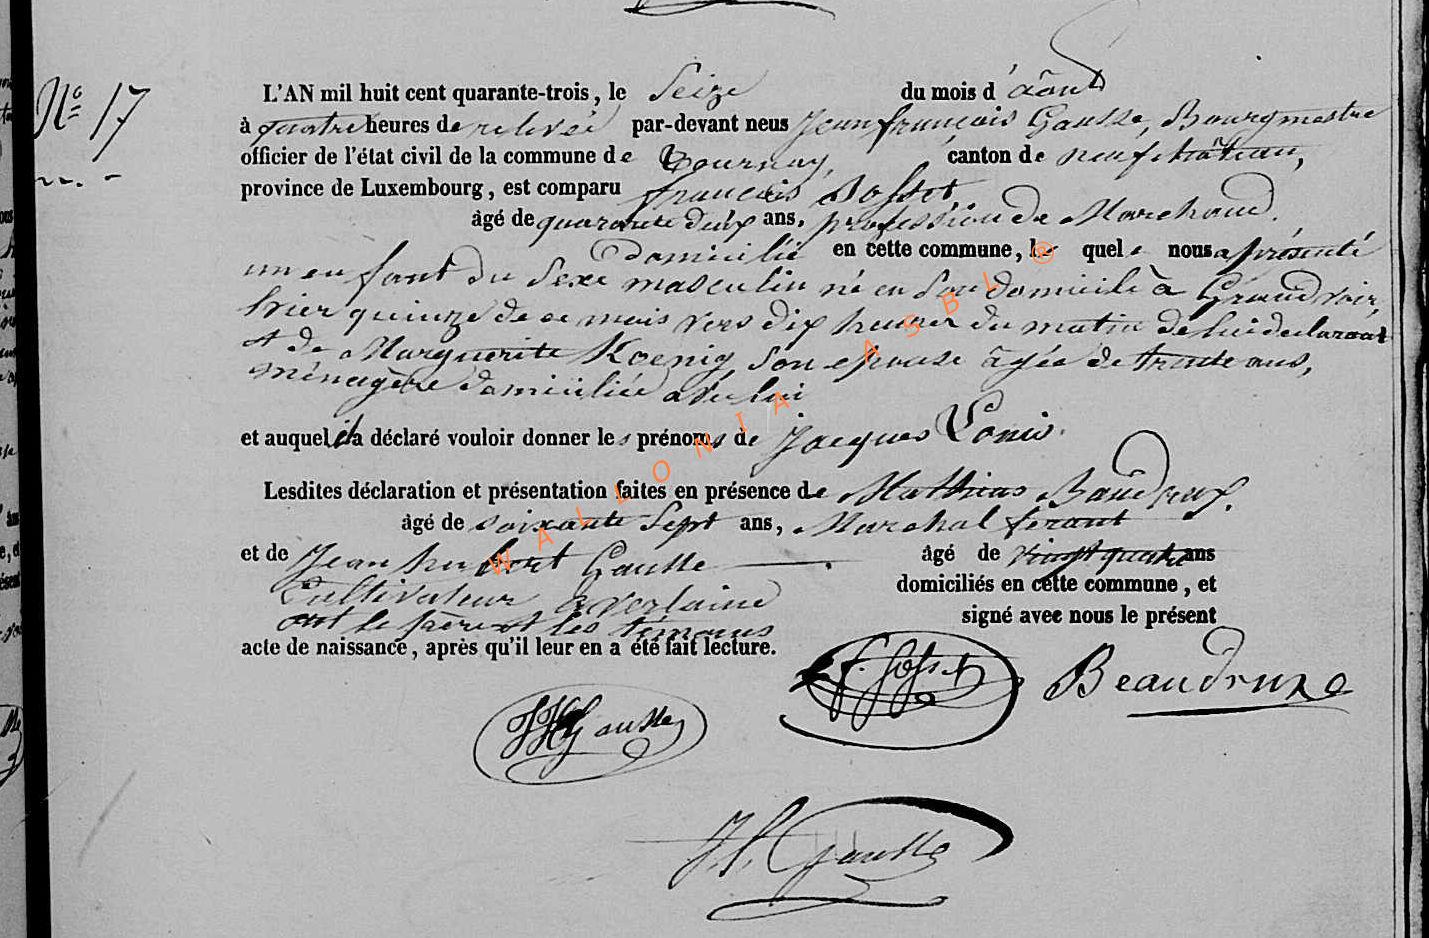 N° 17
L'AN mil huit cent quarante-trois, le Seize du mois d'août
à quatre heures de relevée par-devant nous Jean françois Gausse, Bourgmestre
officier de l'état civil de la commune de Tournay, canton de neufchâteau,
province de Luxembourg, est comparu françois Sosset,
âgé de quarante deux ans, profession de Marchand.
Domicilié en cette commune, le quel nous a présenté
un enfant du Sexe masculin né en Son domicile à Grandvoir,
hier quinze de ce mois vers dix heures du matin de lui declarant
et de Marguerite Koenig Son epouse âgée de trente ans,
ménagère domiciliée avec lui
et auquel il a déclaré vouloir donner les prénoms de Jacques Louis.
Lesdites déclaration et présentation faites en présence de Mathias Baudrux.
âgé de soixante Sept ans, Marchal ferant
et de Jean hubert Gausse âgé de vingt quatre ans
Cultivateur à Verlaine domiciliés en cette commune, et
ont le père et les témouns signé avec nous le présent
acte de naissance, après qu'il leur en a été fait lecture.
f. Sosset Beaudruxe
JH Gausse
J. f. Gausse
WALLONIA ASBL ®